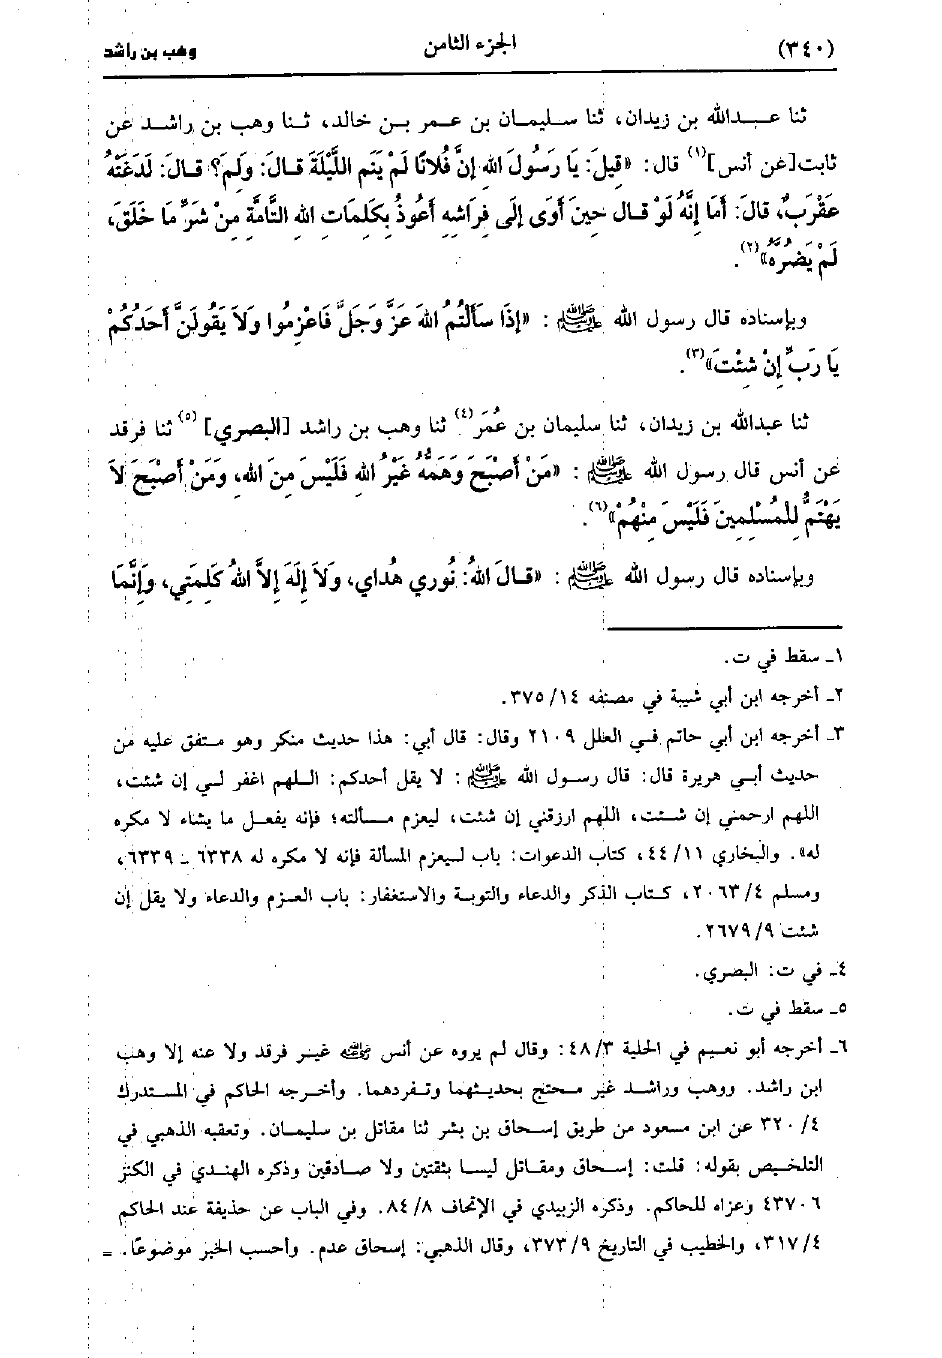 (٣٤٠) الجزء الثامن وهب بن راشد
ثنا عبدالله بن زيدان، ثنا سليمان بن عمر بن خالد، ثنا وهب بن راشد عن
ثابت [عن أنس](١) قال: «قِيلَ: يَا رَسُولَ الله إِنَّ فُلَانًا لَمْ يَنَمِ اللَّيْلَةَ قَالَ: وَلَمْ؟ قَالَ: لَدَغَتْهُ
عَقْرَبٌ، قَالَ: أَمَا إِنَّهُ لَوْ قَال حِينَ أَوَى إِلَى فِرَاشِهِ أَعُوذُ بِكَلِمَاتِ الله التَّامَّةِ مِنْ شَرِّ مَا خَلَقَ،
لَمْ يَضُرَّهُ»(٢).
وبإسناده قال رسول الله ﷺ: «إِذَا سَأَلْتُم الله عَزَّ وَجَلَّ فَاعْزِمُوا وَلَا يَقُولَنَّ أَحَدُكُمْ
يَا رَبِّ إِنْ شِئْتَ»(٣).
ثنا عبدالله بن زيدان، ثنا سليمان بن عُمَر(٤) ثنا وهب بن راشد [البصري](٥) ثنا فرقد
عن أنس قال رسول الله ﷺ: «مَنْ أَصْبَحَ وَهَمُّهُ غَيْرُ الله فَلَيْسَ مِنَ الله، وَمَنْ أَصْبَحَ لَا
يَهْتَمُّ لِلْمُسْلِمِينَ فَلَيْسَ مِنْهُمْ»(٦).
وبإسناده قال رسول الله ﷺ: «قَالَ اللهُ: نُورِي هُدَاي، وَلَا إِلَهَ إِلَّا اللهُ كَلِمَتِي، وَإِنَّمَا
١ـ سقط في ت.
٢ـ أخرجه ابن أبي شيبة في مصنفه ١٤/ ٣٧٥.
٣ـ أخرجه ابن أبي حاتم في العلل ٢١٠٩ وقال: قال أبي: هذا حديث منكر وهو متفق عليه من
حديث أبي هريرة قال: قال رسول الله ﷺ: لا يقل أحدكم: اللهم اغفر لي إن شئت،
اللهم ارحمني إن شئت، اللهم ارزقني إن شئت، ليعزم مسألته؛ فإنه يفعل ما يشاء لا مكره
له». والبخاري ١١/ ٤٤، كتاب الدعوات: باب ليعزم المسألة فإنه لا مكره له ٦٣٣٨ ـ ٦٣٣٩،
ومسلم ٤/ ٢٠٦٣، كتاب الذكر والدعاء والتوبة والاستغفار: باب العزم والدعاء ولا يقل إن
شئت ٩/ ٢٦٧٩.
٤ـ في ت: البصري.
٥ـ سقط في ت.
٦ـ أخرجه أبو نعيم في الحلية ٣/ ٤٨: وقال لم يروه عن أنس ﷺ غير فرقد ولا عنه إلا وهب
ابن راشد. ووهب وراشد غير محتج بحديثهما وتفردهما. وأخرجه الحاكم في المستدرك
٤/ ٣٢٠ عن ابن مسعود من طريق إسحاق بن بشر ثنا مقاتل بن سليمان. وتعقبه الذهبي في
التلخيص بقوله: قلت: إسحاق ومقاتل ليسا بثقتين ولا صادقين وذكره الهندي في الكنز
٤٣٧٠٦ وعزاه للحاكم. وذكره الزبيدي في الإتحاف ٨/ ٨٤. وفي الباب عن حذيفة عند الحاكم
٤/ ٣١٧، والخطيب في التاريخ ٩/ ٣٧٣، وقال الذهبي: إسحاق عدم. وأحسب الخبر موضوعًا. =